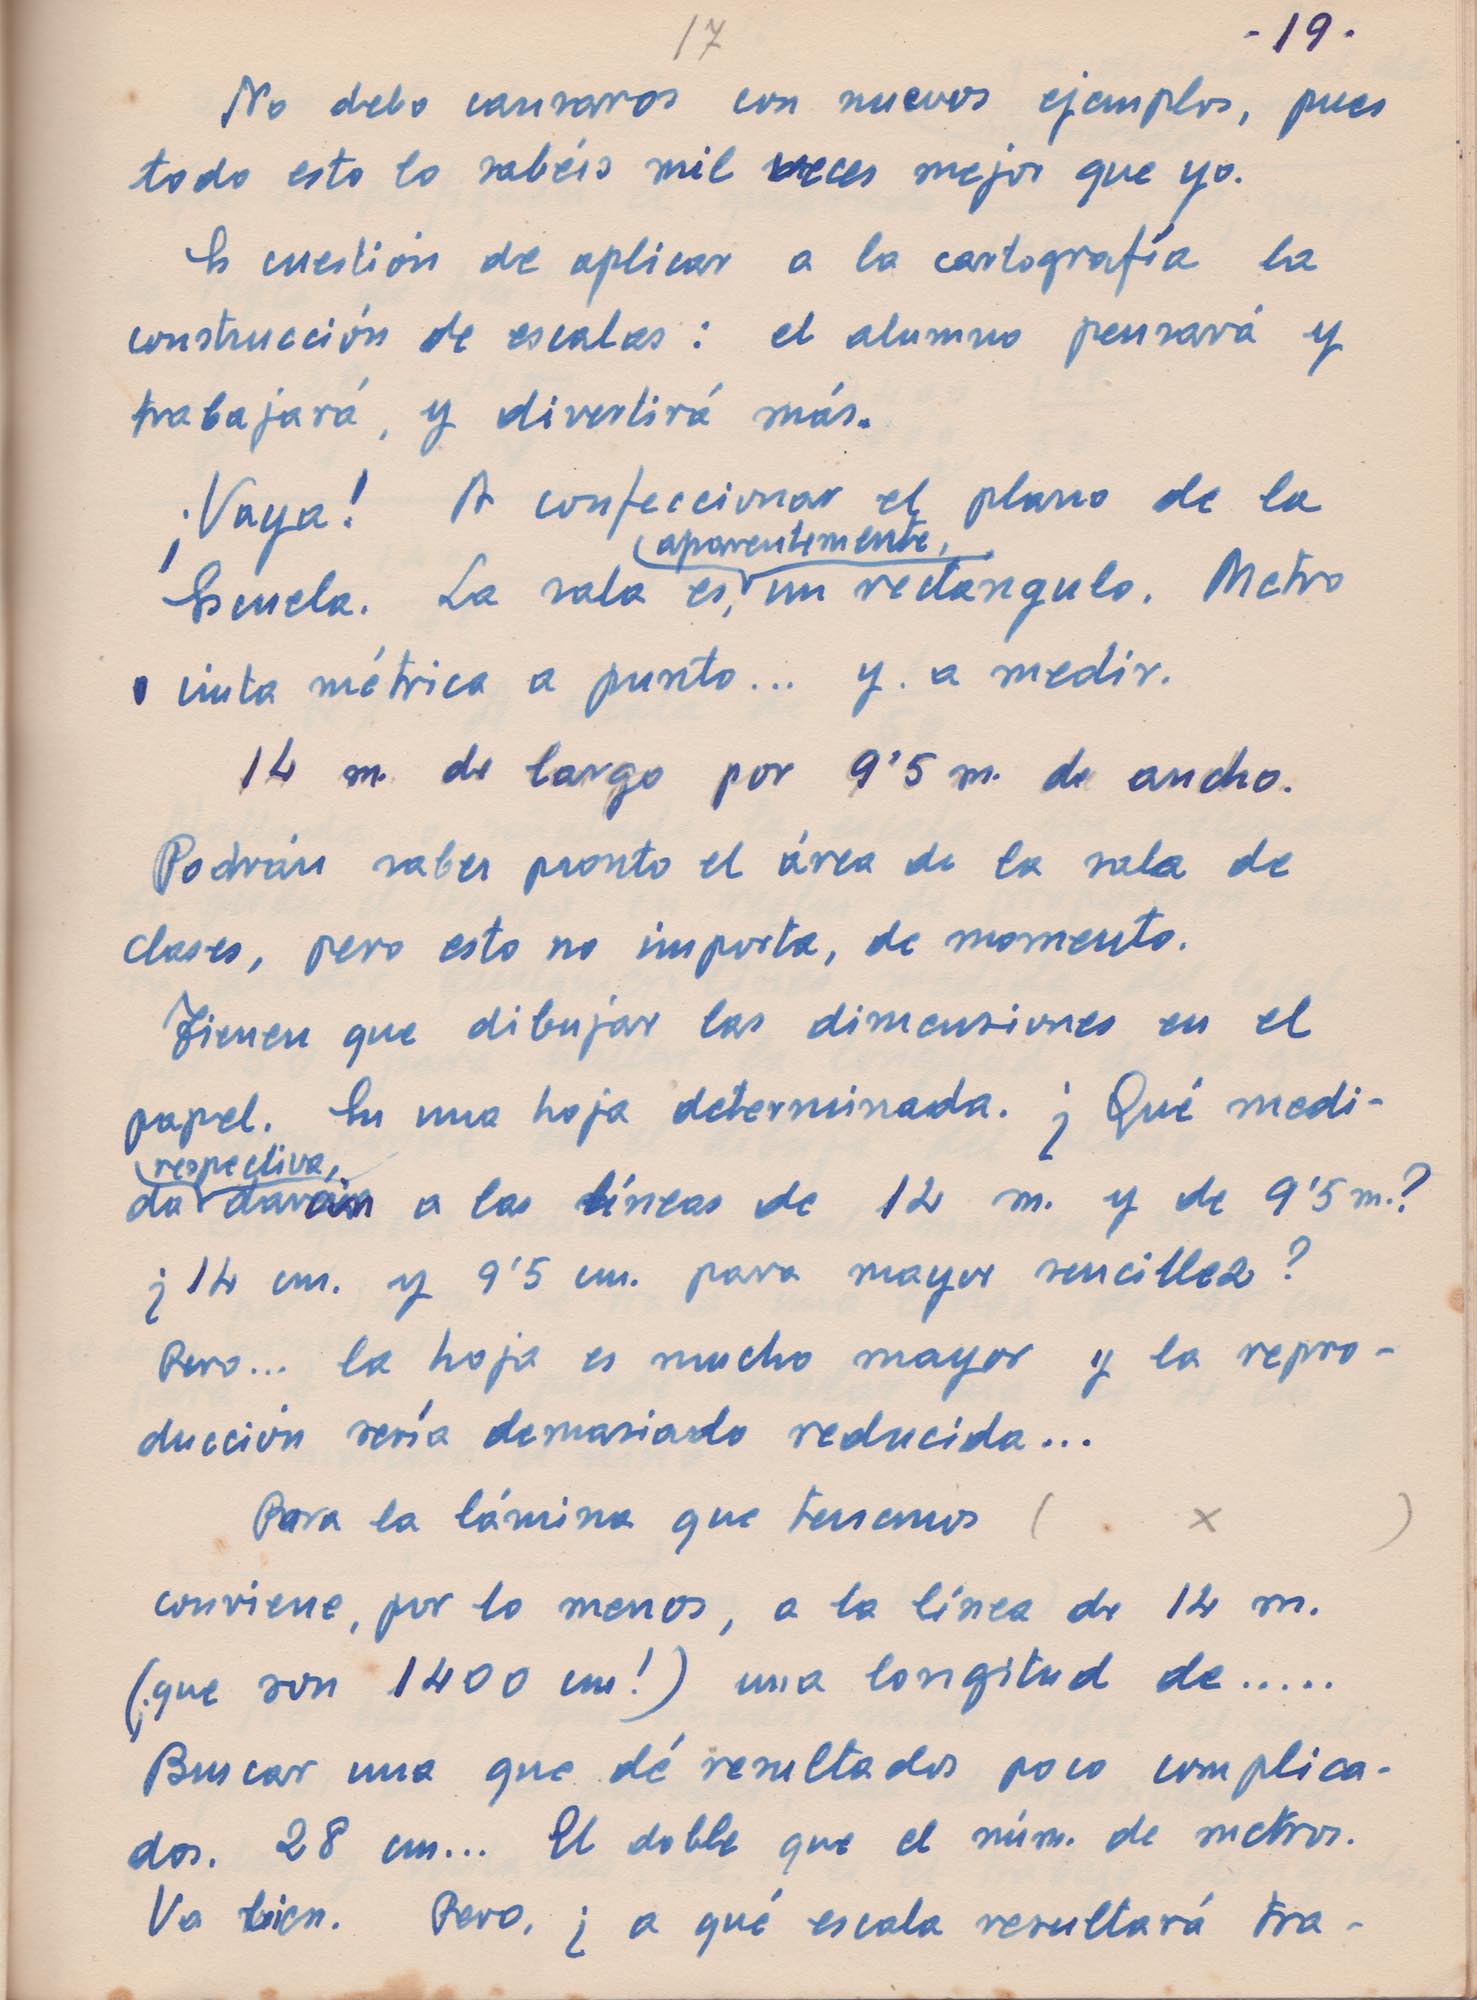 17
-19-
No debo cansaros con nuevos ejemplos, pues
todo esto lo sabéis mil veces mejor que yo.
Es cuestión de aplicar a la cartografía la
construcción de escalas: el alumno pensará y
trabajará, y divertirá más.
¡Vaya! A confeccionar el plano de la
aparentemente,
Escuela. La sala es, un rectángulo. Metro
o cinta métrica a punto... y a medir.
14 m. de largo por 9'5 m. de ancho.
Podrán saber pronto el área de la sala de
clases, pero esto no importa, de momento.
Tienen que dibujar las dimensiones en el
papel. En una hoja determinada. ¿Qué medi-
respectiva,
da darán a las líneas de 14 m. y de 9'5 m.?
¿14 cm. y 9'5 cm. para mayor sencillez?
Pero... la hoja es mucho mayor y la repro-
ducción sería demasiado reducida...
Para la lámina que tenemos ( x )
conviene, por lo menos, a la línea de 14 m.
(¡que son 1400 cm!) una longitud de.....
Buscar una que dé resultados poco complica-
dos. 28 cm... El doble que el núm. de metros.
Va bien. Pero, ¿a qué escala resultará tra-